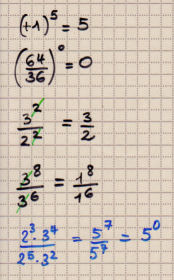 (+1)⁵ = 5
(64/36)⁰ = 0
3²/2² = 3/2
3⁸/3⁶ = 1⁸/1⁶
2³·3⁴/2⁵·3² = 5⁷/5⁷ = 5⁰